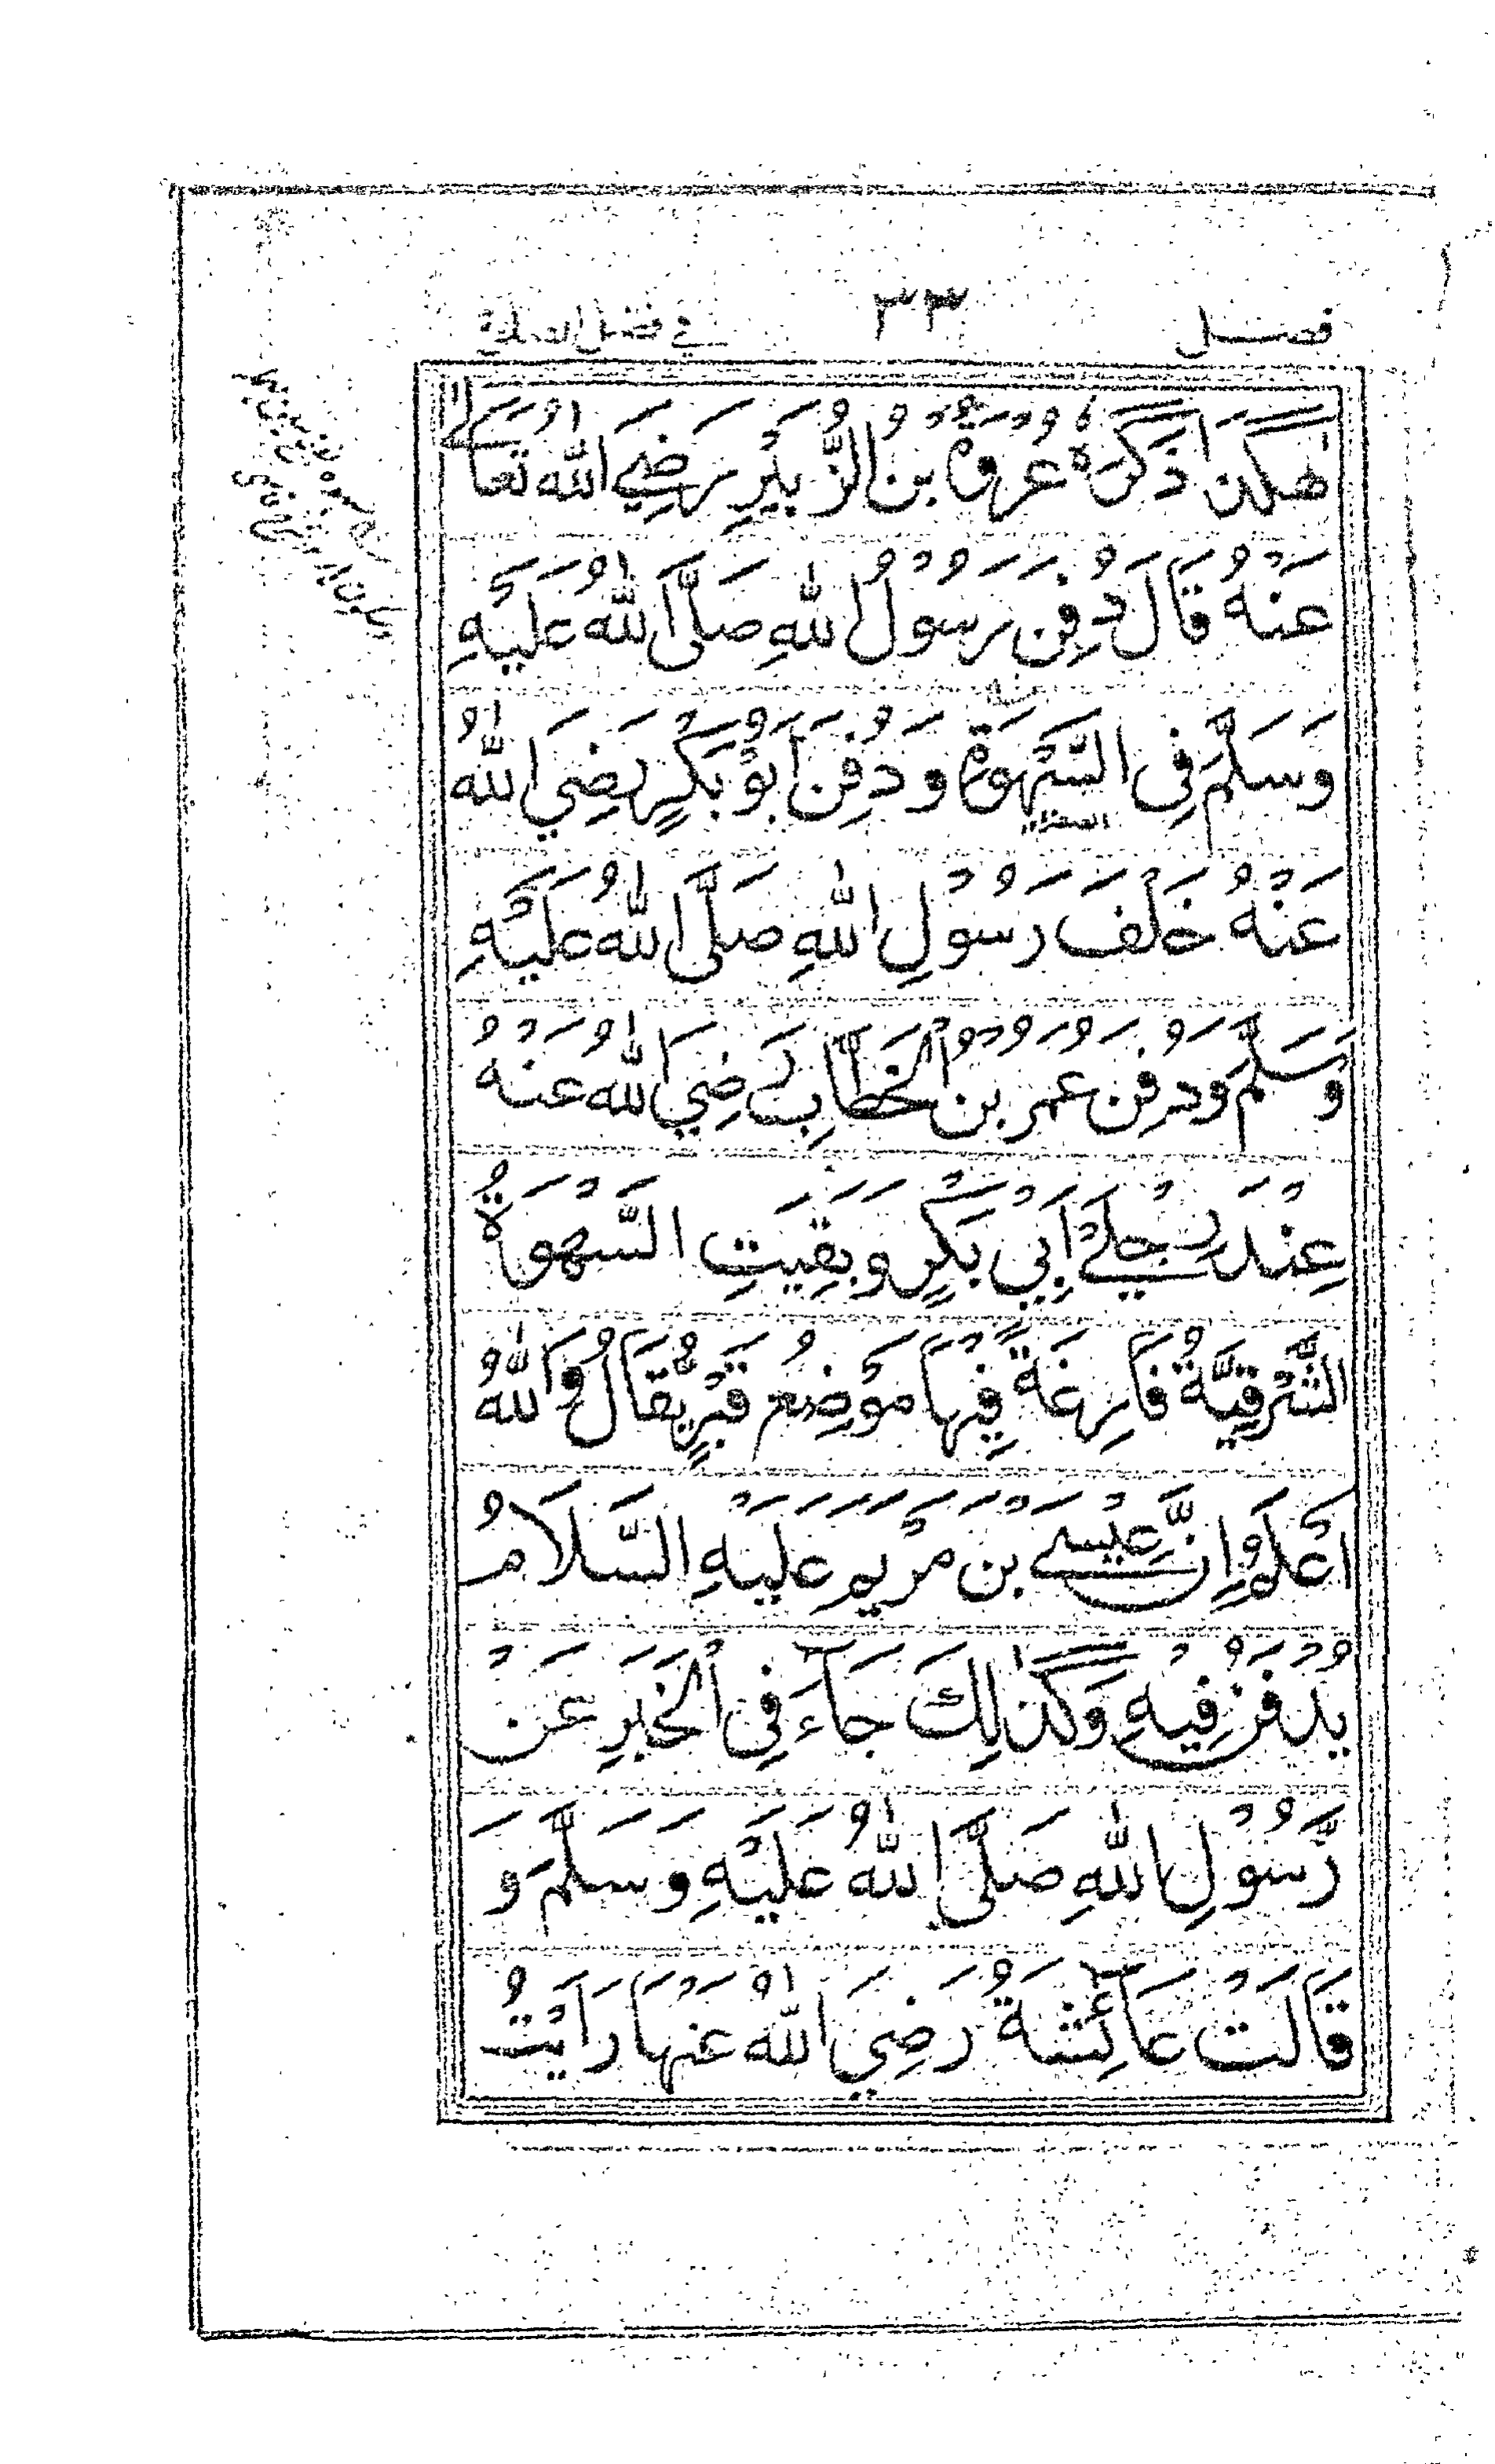 فصل ٣٣ في فضل الصلوة
هٰكَذَا ذَكَرَهُ عُرْوَةُ بْنُ الزُّبَيْرِ رَضِيَ اللّٰهُ تَعَالٰے
عَنْهُ قَالَ دُفِنَ رَسُوْلُ اللّٰهِ صَلَّى اللّٰهُ عَلَيْهِ
وَسَلَّمَ فِى السَّهْوَةِ وَدُفِنَ اَبُوْ بَكْرٍ رَضِيَ اللّٰهُ
عَنْهُ خَلْفَ رَسُوْلِ اللّٰهِ صَلَّى اللّٰهُ عَلَيْهِ
وَسَلَّمَ وَدُفِنَ عُمَرُ بْنُ الْخَطَّابِ رَضِيَ اللّٰهُ عَنْهُ
عِنْدَ رِجْلَےْ اَبِيْ بَكْرٍ وَبَقِيَتِ السَّهْوَةُ
الشَّرْقِيَّةُ فَارِغَةً فِيْهَا مَوْضِعُ قَبْرٍ يُقَالُ وَاللّٰهُ
اَعْلَمُ اِنَّ عِيْسٰے بْنَ مَرْيَمَ عَلَيْهِ السَّلَامُ
يُدْفَنُ فِيْهِ وَكَذٰلِكَ جَآءَ فِى الْخَبَرِ عَنْ
رَّسُوْلِ اللّٰهِ صَلَّى اللّٰهُ عَلَيْهِ وَسَلَّمَ وَ
قَالَتْ عَآئِشَةُ رَضِيَ اللّٰهُ عَنْهَا رَاَيْتُ